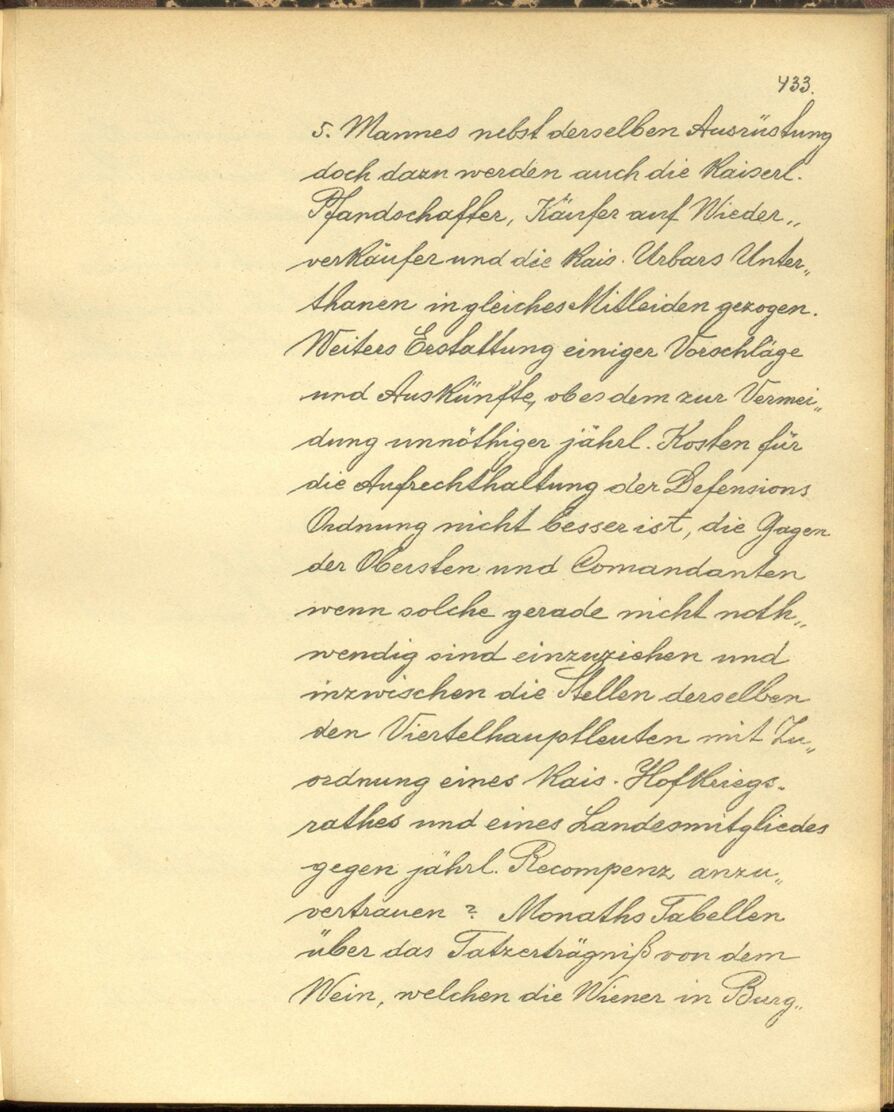 433.
5. Mannes nebst derselben Ausrüstung
doch dazu werden auch die Kaiserl.
Pfandschafter, Käufer auf Wieder„
verkäufer und die Kais. Urbars Unter„
thanen in gleiches Mitleiden gezogen.
Weiters Erstattung einiger Vorschläge
und Auskünfte, ob es dem zur Vermei„
dung unnöthiger jährl. Kosten für
die Aufrechthaltung der Defensions
Ordnung nicht besser ist, die Gagen
der Obersten und Comandanten
wenn solche gerade nicht noth„
wendig sind einzuziehen und
inzwischen die Stellen derselben
den Viertelhauptleuten mit Zu„
ordnung eines Kais. Hofkriegs-
rathes und eines Landesmitgliedes
gegen jährl. Recompenz anzu„
vertrauen? Monaths Tabellen
über das Tatzerträgniß von dem
Wein, welchen die Wiener in Burg„